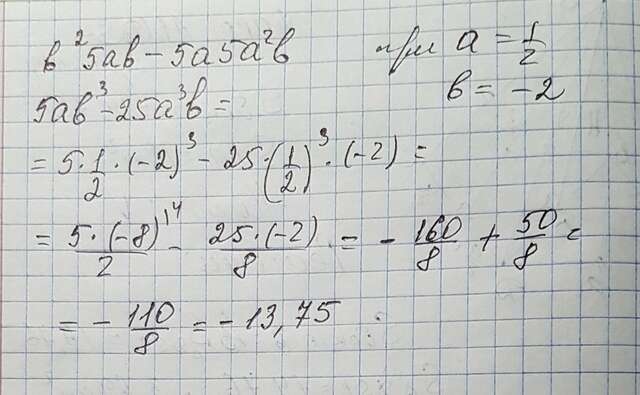 в²5ав – 5а5а²в при а = 1/2
5ав³ – 25а³в = в = –2
= 5·1/2·(–2)³ – 25·(1/2)³·(–2) =
= 5·(–8)\4/2 – 25·(–2)/8 = – 160/8 + 50/8 =
= – 110/8 = – 13,75